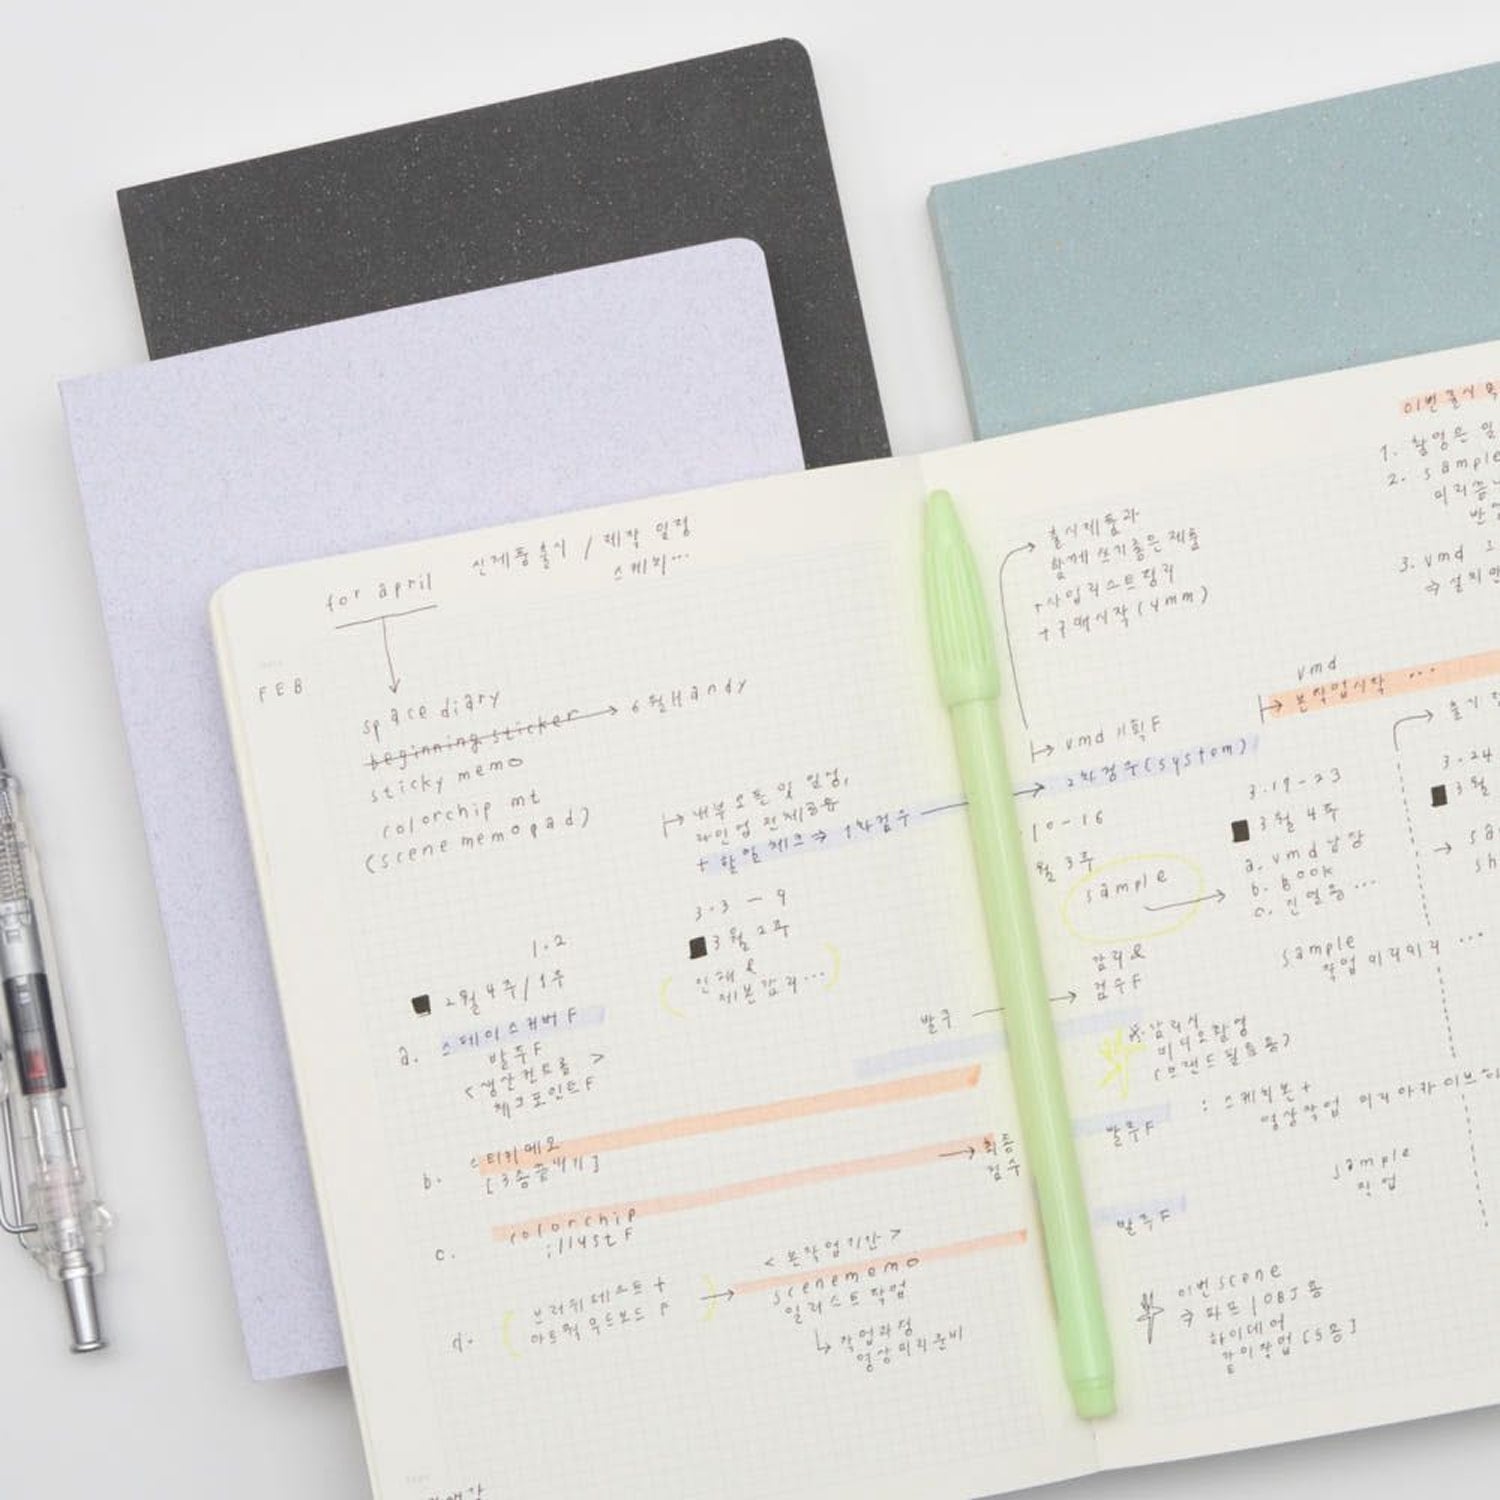 for april
신제품출시 / 제작 일정
스케치...
FEB
space diary
beginning sticker → 6월 Handy
sticky memo
colorchip mt
(scene memopad)
↦ 내부 오픈 및 일정,
라인업 전체공유
+ 할일 체크 ⇒ 1차검수
1.2
■ 2월 4주/1주
3.3 - 9
■ 3월 2주
인쇄 &
제본감리...
a. 스페이스커버 F
발주F
<생산컨트롤>
체크포인트F
발주
b. 스티키메모
[3종끝내기]
최종
검수
c. colorchip
illust F
d. 브러쉬테스트 +
아트웍 무드보드 F
<본작업기간>
scenememo
일러스트작업
↳ 작업과정
영상미리준비
출시제품과
함께 쓰기좋은 제품
+사입리스트정리
+구매시작(4mm)
↦ vmd 기획F
2차검수(system)
10-16
월 3주
sample
감리&
검수F
※감리시
비디오촬영
(브랜드필름용)
: 스케치본+
영상작업 미리아카이브
발주F
발주F
이번scene
⇒ 파프/OBJ 용
아이데어
같이작업 [5종]
1. 촬영은
2. sample
3. vmd
vmd
↦ 본작업시작 ...
3.19-23
■ 3월 4주
a. vmd 남장
b. book
c. 진열용...
sample
작업 미리미리 ...
sample
작업
3.24
■ 3월